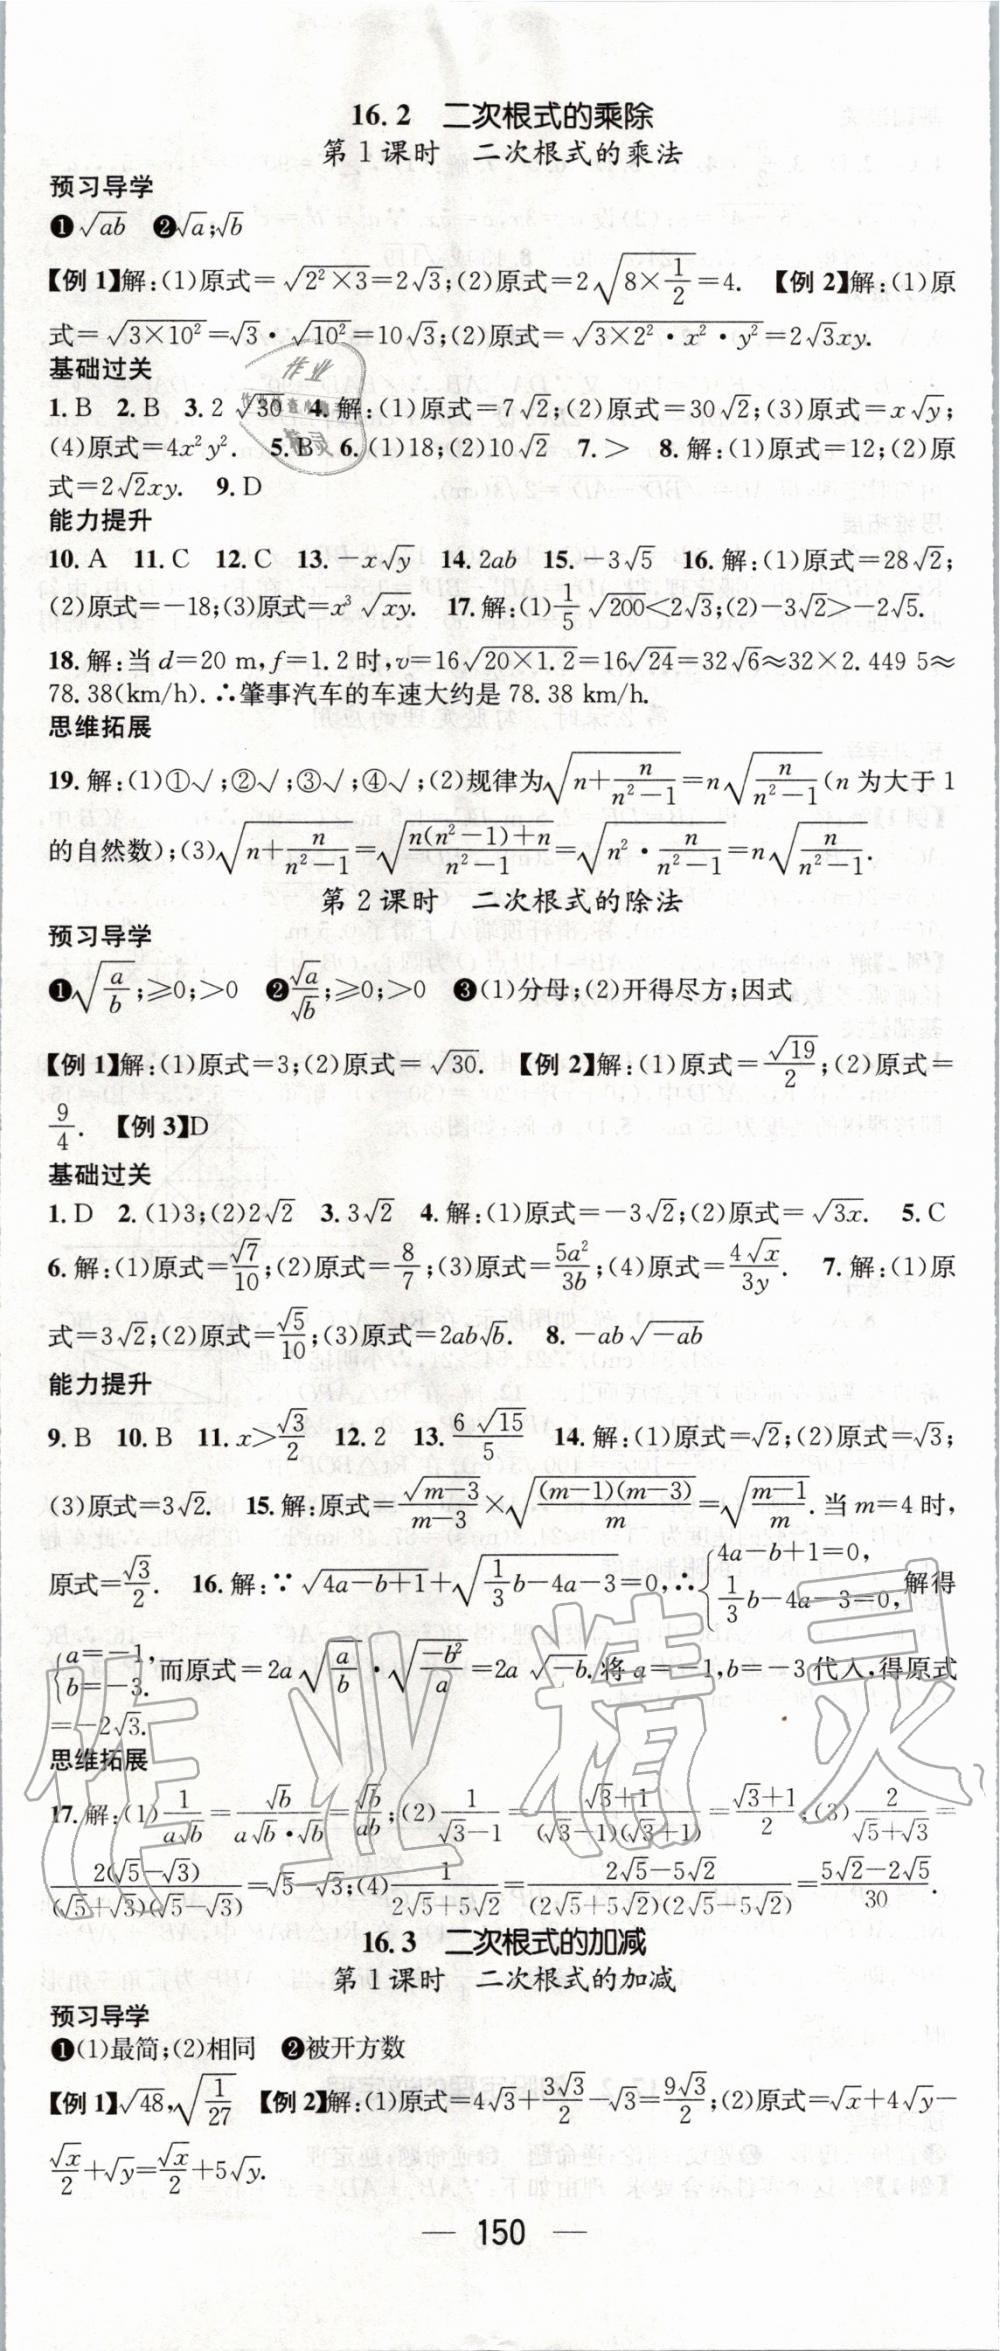 16.2 二次根式的乘除
第1课时 二次根式的乘法
预习导学
❶√(ab) ❷√a;√b
【例1】解:(1)原式=√(2²×3)=2√3;(2)原式=2√(8×1/2)=4. 【例2】解:(1)原
式=√(3×10²)=√3·√(10²)=10√3;(2)原式=√(3×2²·x²·y²)=2√3xy.
基础过关
1.B 2.B 3.2√30 4.解:(1)原式=7√2;(2)原式=30√2;(3)原式=x√y;
(4)原式=4x²y². 5.B 6.(1)18;(2)10√2 7.> 8.解:(1)原式=12;(2)原
式=2√2xy. 9.D
能力提升
10.A 11.C 12.C 13.-x√y 14.2ab 15.-3√5 16.解:(1)原式=28√2;
(2)原式=-18;(3)原式=x³√(xy). 17.解:(1)1/5√200<2√3;(2)-3√2>-2√5.
18.解:当d=20 m,f=1.2时,v=16√(20×1.2)=16√24=32√6≈32×2.449 5≈
78.38(km/h).∴肇事汽车的车速大约是78.38 km/h.
思维拓展
19.解:(1)①√;②√;③√;④√;(2)规律为√(n+n/(n²-1))=n√(n/(n²-1))(n为大于1
的自然数);(3)√(n+n/(n²-1))=√((n(n²-1)+n)/(n²-1))=√(n²·n/(n²-1))=n√(n/(n²-1)).
第2课时 二次根式的除法
预习导学
❶√(a/b);≥0;>0 ❷√a/√b;≥0;>0 ❸(1)分母;(2)开得尽方;因式
【例1】解:(1)原式=3;(2)原式=√30. 【例2】解:(1)原式=√19/2;(2)原式=
9/4. 【例3】D
基础过关
1.D 2.(1)3;(2)2√2 3.3√2 4.解:(1)原式=-3√2;(2)原式=√(3x). 5.C
6.解:(1)原式=√7/10;(2)原式=8/7;(3)原式=5a²/3b;(4)原式=4√x/3y. 7.解:(1)原
式=3√2;(2)原式=√5/10;(3)原式=2ab√b. 8.-ab√(-ab)
能力提升
9.B 10.B 11.x>√3/2 12.2 13.6√15/5 14.解:(1)原式=√2;(2)原式=√3;
(3)原式=3√2. 15.解:原式=√(m-3)/(m-3)×√((m-1)(m-3)/m)=√((m-1)/m).当m=4时,
原式=√3/2. 16.解:∵√(4a-b+1)+√(1/3b-4a-3)=0,∴{4a-b+1=0, 1/3b-4a-3=0,解得
{a=-1, b=-3.而原式=2a√(a/b)·√(-b²/a)=2a√(-b).将a=-1,b=-3代入,得原式
=-2√3.
思维拓展
17.解:(1)1/(a√b)=√b/(a√b·√b)=√b/ab;(2)1/(√3-1)=(√3+1)/((√3-1)(√3+1))=(√3+1)/2;(3)2/(√5+√3)=
2(√5-√3)/((√5+√3)(√5-√3))=√5-√3;(4)1/(2√5+5√2)=(2√5-5√2)/((2√5+5√2)(2√5-5√2))=(5√2-2√5)/30.
16.3 二次根式的加减
第1课时 二次根式的加减
预习导学
❶(1)最简;(2)相同 ❷被开方数
【例1】√48,√(1/27) 【例2】解:(1)原式=4√3+3√3/2-√3=9√3/2;(2)原式=√x+4√y-
√x/2+√y=√x/2+5√y.
— 150 —
作业精灵